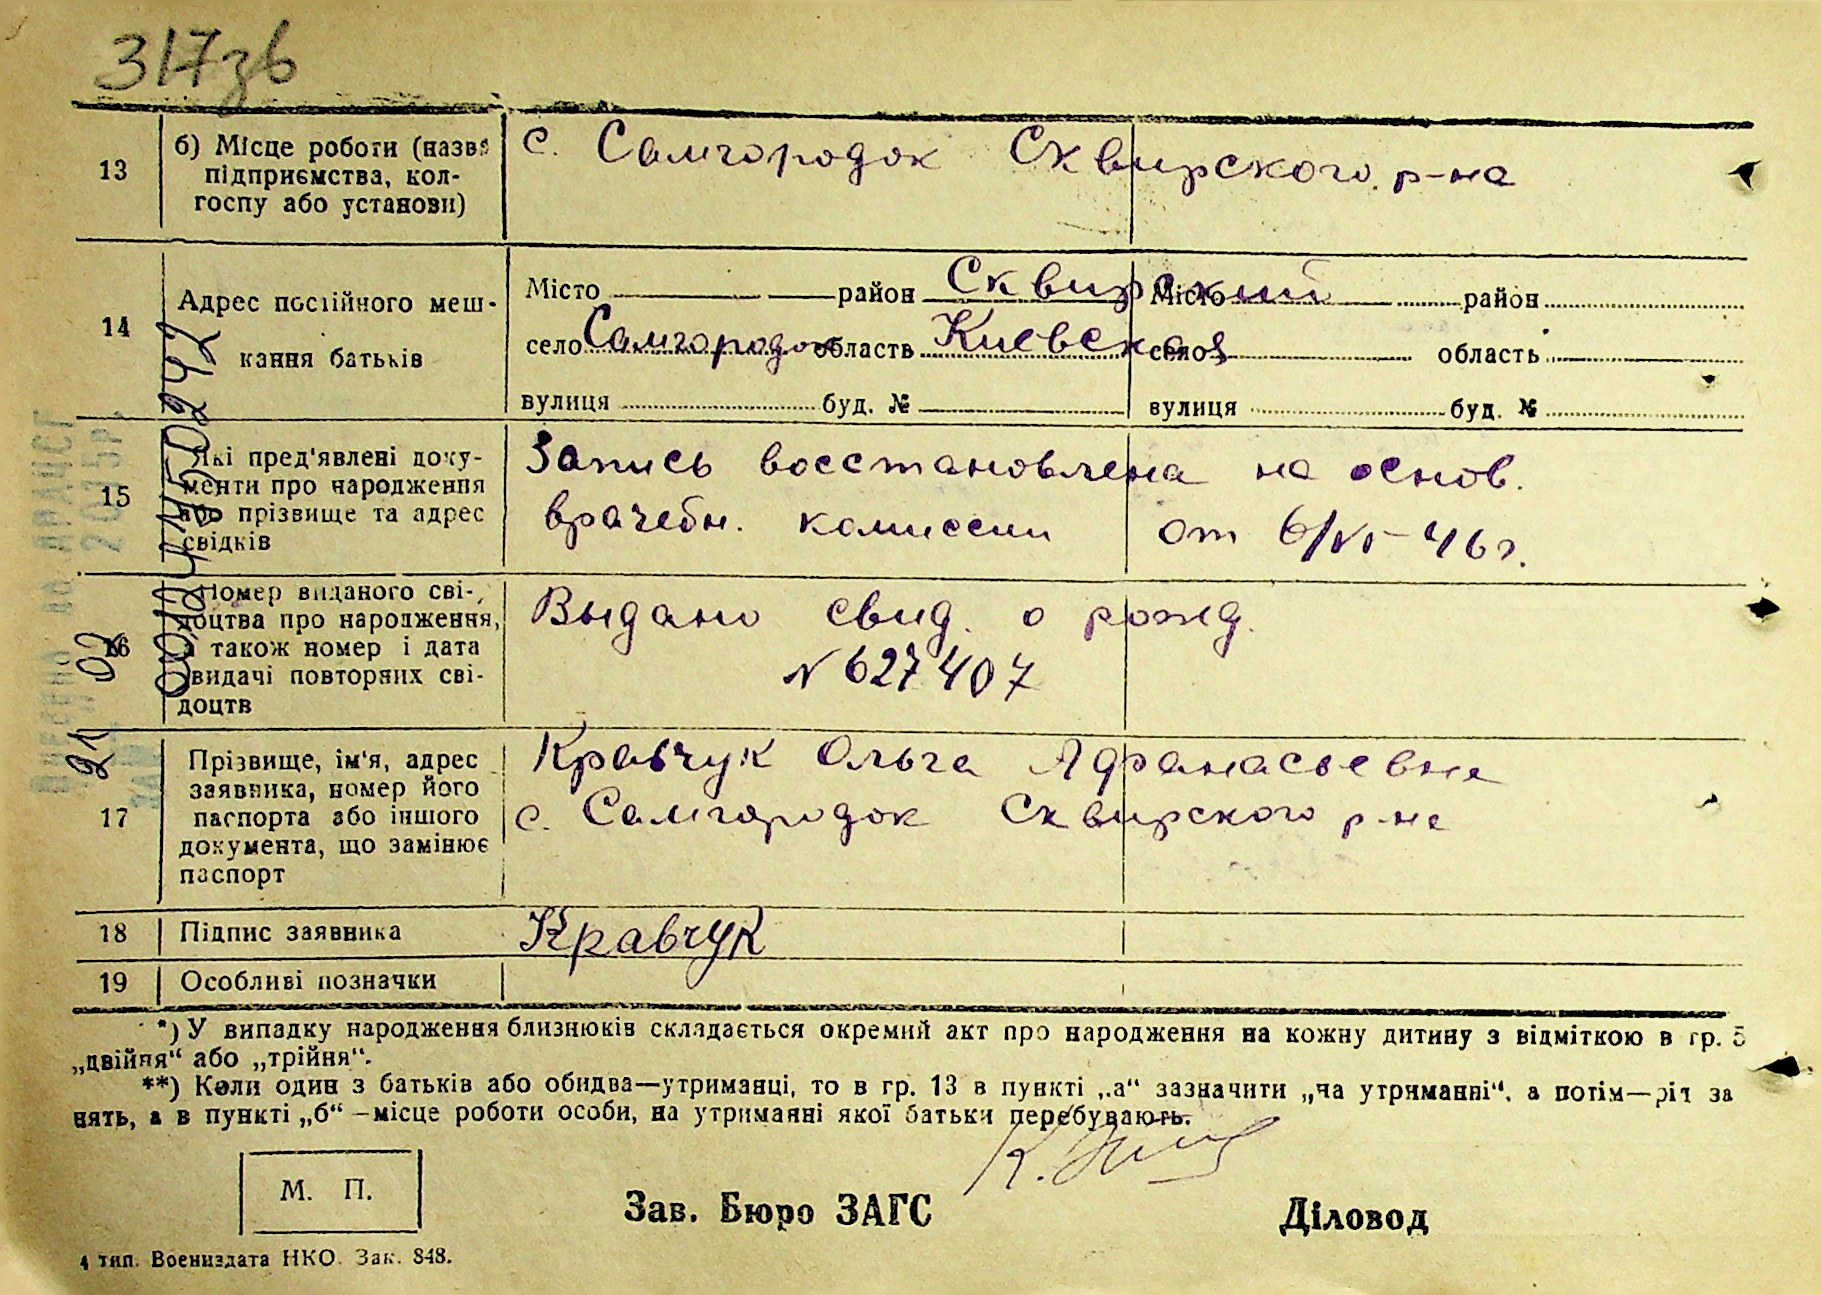 317зв
13
б) Місце роботи (назва
підприємства, кол-
госпу або установи)
с. Самгородок Сквирского р-на
14
Адрес постійного меш-
кання батьків
Місто район Сквирский
село Самгородок область Киевская
вулиця буд. №
Місто район
село область
вулиця буд. №
15
Які пред'явлені доку-
менти про народження
або прізвище та адрес
свідків
Запись восстановлена на основ.
врачебн. комиссии от 6/VI-46г.
16
Номер виданого сві-
доцтва про народження,
а також номер і дата
видачі повторних сві-
доцтв
Выдано свид. о рожд.
N 627407
17
Прізвище, ім'я, адрес
заявника, номер його
паспорта або іншого
документа, що замінює
паспорт
Кравчук Ольга Афанасьевна
с. Самгородок Сквирского р-на
18
Підпис заявника
Кравчук
19
Особливі позначки
*) У випадку народження близнюків складається окремий акт про народження на кожну дитину з відміткою в гр. 5
„двійня“ або „трійня“.
**) Коли один з батьків або обидва—утриманці, то в гр. 13 в пункті „а“ зазначити „на утриманні“, а потім—рід за
нять, а в пункті „б“ —місце роботи особи, на утриманні якої батьки перебувають.
М. П.
Зав. Бюро ЗАГС
Діловод
4 тип. Воениздата НКО. Зак. 848.